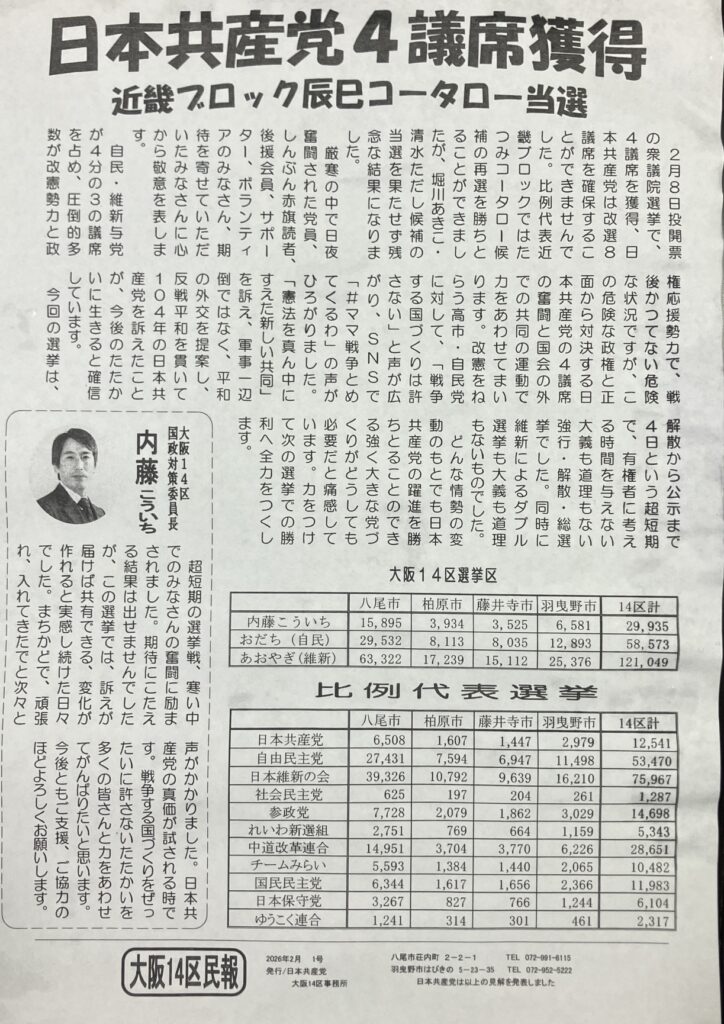 日本共産党4議席獲得
近畿ブロック辰巳コータロー当選
2月8日投開票
の衆議院選挙で、
4議席を獲得、日
本共産党は改選8
議席を確保するこ
とができませんで
した。比例代表近
畿ブロックではた
つみコータロー候
補の再選を勝ちと
ることができまし
たが、堀川あきこ・
清水ただし候補の
当選を果たせず残
念な結果になりま
した。
厳寒の中で日夜
奮闘された党員、
しんぶん赤旗読者、
後援会員、サポー
ター、ボランティ
アのみなさん、期
待を寄せていただ
いたみなさんに心
から敬意を表しま
す。
自民・維新与党
が4分の3の議席
を占め、圧倒的多
数が改憲勢力と政
権応援勢力で、戦
後かつてない危険
な状況ですが、こ
の危険な政権と正
面から対決する日
本共産党の4議席
の奮闘と国会の外
での共同の運動で
力をあわせてまい
ります。改憲をね
らう高市・自民党
に対して、「戦争
する国づくりは許
さない」と声が広
がり、SNSで
「#ママ戦争とめ
てくるわ」の声が
ひろがりました。
「憲法を真ん中に
すえた新しい共同」
を訴え、軍事一辺
倒ではなく、平和
の外交を提案し、
反戦平和を貫いて
104年の日本共
産党を訴えたこと
が、今後のたたか
いに生きると確信
しています。
今回の選挙は、
解散から公示まで
4日という超短期
で、有権者に考え
る時間を与えない
大義も道理もない
強行・解散・総選
挙でした。同時に
維新によるダブル
選挙も大義も道理
もないものでした。
どんな情勢の変
動のもとでも日本
共産党の躍進を勝
ちとることのでき
る強く大きな党づ
くりがどうしても
必要だと痛感して
います。力をつけ
て次の選挙での勝
利へ全力をつくし
ます。
大阪14区
国政対策委員長
内藤こういち
超短期の選挙戦、寒い中
でのみなさんの奮闘に励ま
されました。期待にこたえ
る結果は出せませんでした
が、この選挙では、訴えが
届けば共有できる、変化が
作れると実感し続けた日々
でした。まちかどで、頑張
れ、入れてきたでと次々と
声がかかりました。日本共
産党の真価が試される時で
す。戦争する国づくりをぜっ
たいに許さないたたかいを
多くの皆さんと力をあわせ
てがんばりたいと思います。
今後ともご支援、ご協力の
ほどよろしくお願いします。
大阪14区選挙区
八尾市 柏原市 藤井寺市 羽曳野市 14区計
内藤こういち 15,895 3,934 3,525 6,581 29,935
おだち(自民) 29,532 8,113 8,035 12,893 58,573
あおやぎ(維新) 63,322 17,239 15,112 25,376 121,049
比例代表選挙
八尾市 柏原市 藤井寺市 羽曳野市 14区計
日本共産党 6,508 1,607 1,447 2,979 12,541
自由民主党 27,431 7,594 6,947 11,498 53,470
日本維新の会 39,326 10,792 9,639 16,210 75,967
社会民主党 625 197 204 261 1,287
参政党 7,728 2,079 1,862 3,029 14,698
れいわ新選組 2,751 769 664 1,159 5,343
中道改革連合 14,951 3,704 3,770 6,226 28,651
チームみらい 5,593 1,384 1,440 2,065 10,482
国民民主党 6,344 1,617 1,656 2,366 11,983
日本保守党 3,267 827 766 1,244 6,104
ゆうこく連合 1,241 314 301 461 2,317
大阪14区民報
2026年2月 1号
発行/日本共産党
大阪14区事務所
八尾市荘内町 2-2-1 TEL 072-991-6115
羽曳野市はびきの 5-23-35 TEL 072-952-5222
日本共産党は以上の見解を発表しました